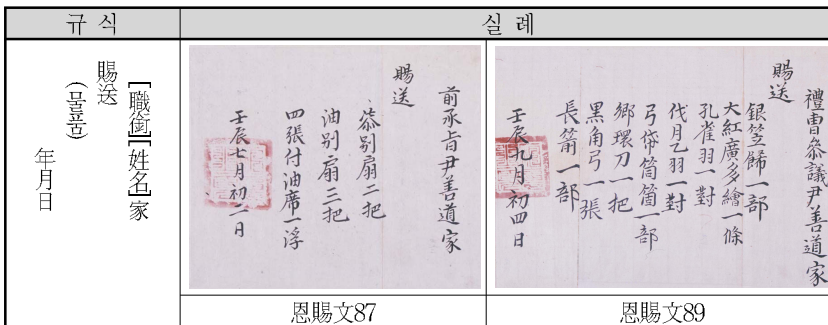 규 식
실 례
[職銜][姓名]家
賜送
(물품)
年月日
前承旨尹善道家
賜送
漆別扇二把
油別扇三把
四張付油席一浮
壬辰七月初二日
禮曹參議尹善道家
賜送
銀笠餙一部
大紅廣多繪一條
孔雀羽一對
伐月乙羽一對
弓帒筒箇一部
鄉環刀一把
黑角弓一張
長箭一部
壬辰九月初四日
恩賜文87
恩賜文89